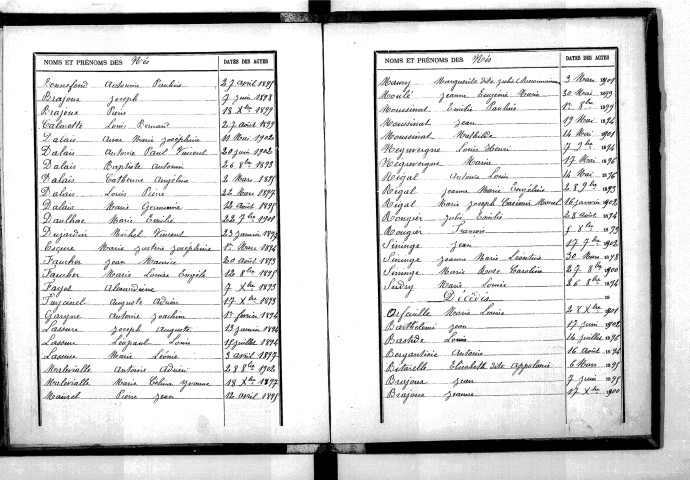 NOMS ET PRÉNOMS DES Nés DATES DES ACTES
Bonnefond Antonin Paulin 27 avril 1895
Brajoux Joseph 7 juin 1898
Brajoux Pierre 18 Xbre 1899
Calmette Louis Bernard 27 août 1899
Dalais Anne Marie Joséphine 11 Mai 1902
Dalais Antonin Paul Vincent 20 juin 1902
Dalais Baptiste Antonin 26 8bre 1893
Dalais Catherine Angéline 2 Mars 1895
Dalais Louis Pierre 22 Mars 1897
Dalais Marie Germaine 12 Août 1895
Daulhac Marie Emilie 22 7bre 1901
Dujardin Michel Vincent 23 janvier
Escure Marie Justine Joséphine 1er Mars 1894
Faucher Jean Maurice 20 août 1893
Faucher Marie Louise 12 8bre 1895
Fayet Alexandrine 7 Xbre 1893
Auguste Adrien 17 Xbre 1893
Garyne Antoine Joachim 1er février 1894
Lassure Joseph Auguste 13 janvier 1894
Lassure Léopaul Louis 15 juillet 1894
Lassure Marie Léonie 3 avril 1897
Malevialle Antoine Adrien 28 8bre 1902
Malevialle Marie Celina Yvonne 18 Xbre 1897
Mauret Pierre Jean 12 avril 1895
NOMS ET PRÉNOMS DES Nés DATES DES ACTES
Maury Marguerite dite Julie 3 Mars 1901
Moulé Jeanne Eugénie Marie 30 Mai 1899
Moussinat Emilie Pauline 1er 8bre 1899
Moussinat Jean 19 Mai 1894
Moussinat Mathilde 14 Mai 1901
Négrevergne Louis Henri 7 9bre 1894
Négrevergne Maria 17 Mai 1896
Rigal Antoine Louis 14 Mai 1896
Rigal Jeanne Marie Eugénie 28 9bre 1893
Rigal Marie Joseph Casimir Marcel 16 janvier 1902
Rougier Julie Emilie 28 août 1894
Rougier François 8 8bre 1893
Sininge Jean 17 7bre 1902
Sininge Jeanne Marie Léontine 30 Mars 1898
Sininge Marie Rose Caroline 27 8bre 1900
Sudry Marie Louise 26 8bre 1894
Décès
Marie Louise 28 Xbre 1901
Barthélemi Jean 17 juin 1902
Bastide Louis 14 juillet 1896
Bergantière Antonin 16 Août 1894
Elisabeth dite Appolonie 6 Mars 1895
Brajoux Jean 7 juin 1895
Brajoux Jeanne 17 Xbre 1900